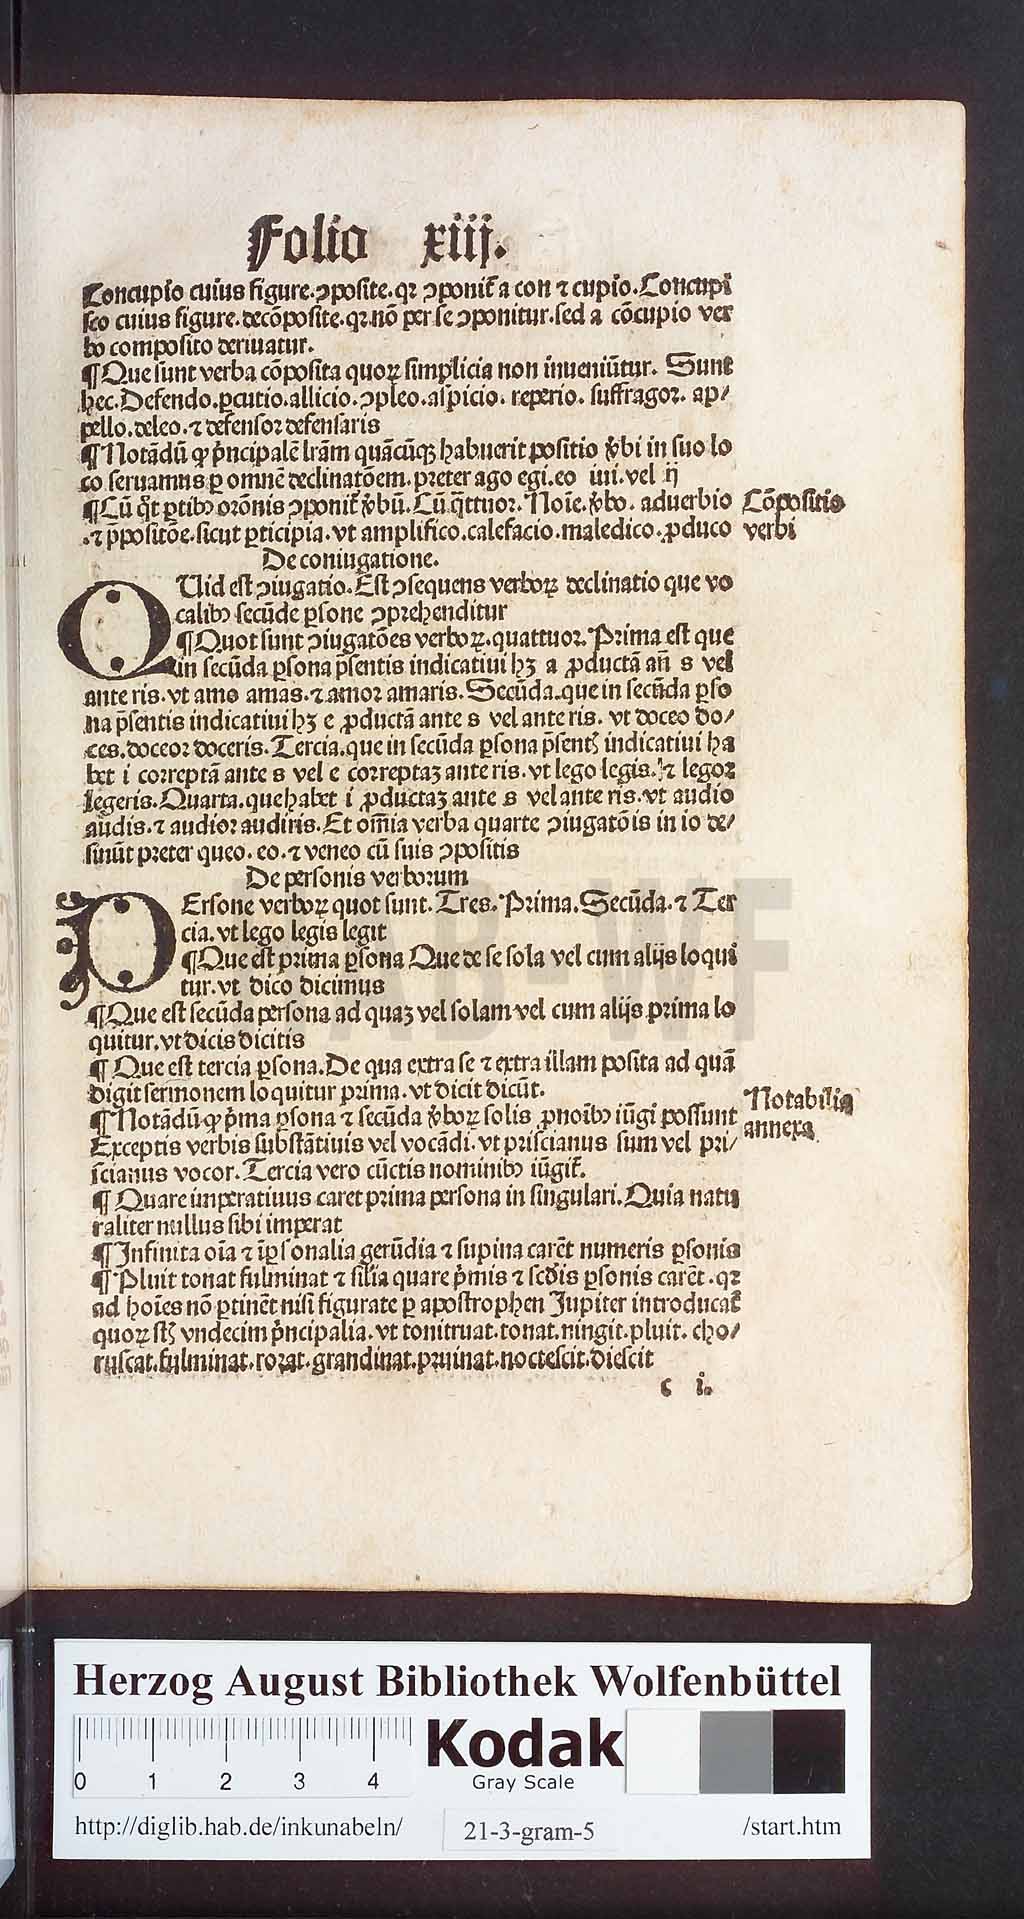 Folio xiij.
Concupio cuius figure. ꝯposite. qꝛ ꝯponit᷑ a con ⁊ cupio. Concupi
sco cuius figure. decōposite. qꝛ nō per se ꝯponitur. sed a cōcupio ver
bo composito deriuatur.
¶ Que sunt verba cōposita quoꝝ simplicia non inueniūtur. Sunt
hec. Defendo. ꝑcutio. allicio. ꝯpleo. aspicio. reperio. suffragoꝛ. ap/
pello. deleo. ⁊ defensoꝛ defensaris
¶ Notādū ꝙ p̍ncipalē lr̄am quācūqꝫ habuerit positio v̍bi in suo lo
co seruamus ꝑ omnē declinatōem. preter ago egi. eo iui. vel ij
¶ Cū qt̍ ꝑtibꝰ orōnis ꝯponit᷑ v̍bū. Cū q̄ttuoꝛ. Noīe. v̍bo. aduerbio
Cōpositio
.⁊ p̄positōe. sicut ꝑticipia. vt amplifico. calefacio. maledico. ꝓduco
verbi
De coniugatione.
QUid est ꝯiugatio. Est ꝯsequens verboꝝ declinatio que vo
calibꝰ secūde ꝑsone ꝯprehenditur
¶ Quot sunt ꝯiugatōes verboꝝ. quattuoꝛ. Prima est que
in secūda ꝑsona p̄sentis indicatiui hꝫ a ꝓductā an̄ s vel
ante ris. vt amo amas. ⁊ amoꝛ amaris. Secūda. que in secūda ꝑso
na p̄sentis indicatiui hꝫ e ꝓductā ante s vel ante ris. vt doceo do/
ces. doceoꝛ doceris. Tercia. que in secūda ꝑsona p̄sentꝭ indicatiui ha
bet i coꝛreptā ante s vel e coꝛreptaꝫ ante ris. vt lego legis. ⁊ legoꝛ
legeris. Quarta. que habet i ꝓductaꝫ ante s vel ante ris. vt audio
audis. ⁊ audioꝛ audiris. Et om̄ia verba quarte ꝯiugatōis in io de/
sinūt pꝛeter queo. eo. ⁊ veneo cū suis ꝯpositis
De personis verboꝛum
PErsone verboꝝ quot sunt. Tres. Prima. Secūda. ⁊ Ter
cia. vt lego legis legit
¶ Que est prima ꝑsona Que de se sola vel cum alijs loqui
tur. vt dico dicimus
¶ Que est secūda persona ad quaꝫ vel solam vel cum alijs prima lo
quitur. vt dicis dicitis
¶ Que est tercia ꝑsona. De qua extra se ⁊ extra illam posita ad quā
digit sermonem loquitur prima. vt dicit dicūt.
Notabilia
¶ Notādū ꝙ p̍ma ꝑsona ⁊ secūda v̍boꝝ solis ꝓnoībꝰ iūgi possunt
annexa
Exceptis verbis substātiuis vel vocādi. vt priscianus sum vel pri/
scianus vocor. Tercia vero cūctis nominibꝰ iūgit᷑.
¶ Quare imperatiuus caret prima persona in singulari. Quia natu
raliter nullus sibi imperat
¶ Infinita oīa ⁊ īꝑsonalia gerūdia ⁊ supina carēt numeris ꝑsonis
¶ Pluit tonat fulminat ⁊ sil̄ia quare p̍mis ⁊ scd̄is ꝑsonis carēt. qꝛ
ad hoīes nō ꝑtinēt nisi figurate ꝑ apostrophen Jupiter introducat᷑
quoꝝ stꝭ vndecim p̍ncipalia. vt tonitruat. tonat. ningit. pluit. cho/
ruscat. fulminat. roꝛat. grandinat. pruinat. noctescit. diescit
c i.
HAB-WF
Herzog August Bibliothek Wolfenbüttel
0 1 2 3 4
Kodak
Gray Scale
http://diglib.hab.de/inkunabeln/ 21-3-gram-5 /start.htm